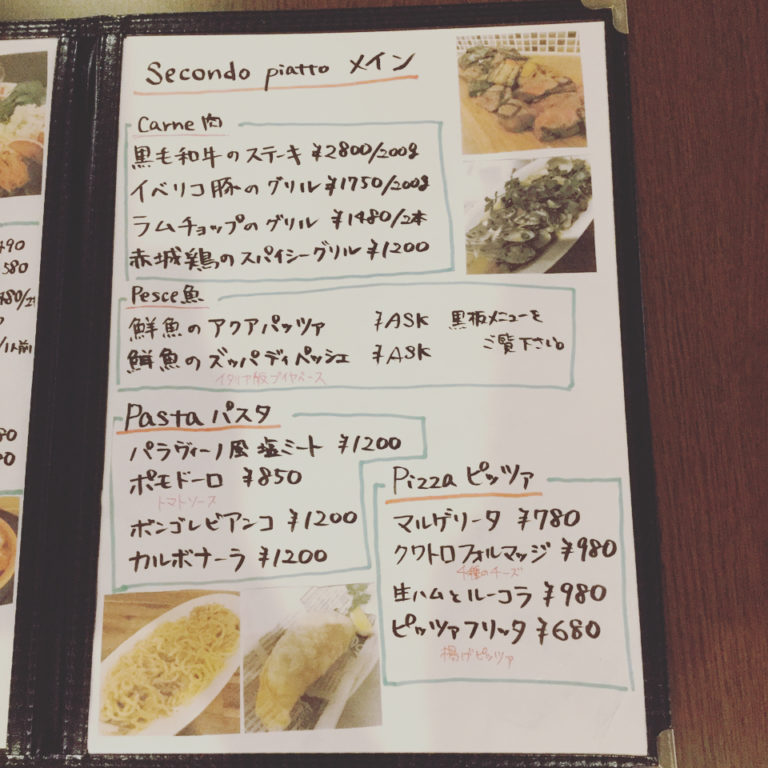 Secondo piatto メイン
Carne 肉
黒毛和牛のステーキ ¥2800/200g
イベリコ豚のグリル ¥1750/200g
ラムチョップのグリル ¥1480/2本
赤城鶏のスパイシーグリル ¥1200
Pesce 魚
鮮魚のアクアパッツァ ¥ASK 黒板メニューを
鮮魚のズッパディペッシェ ¥ASK ご覧下さい。
イタリア版ブイヤベース
Pasta パスタ
パラヴィーノ風塩ミート ¥1200
ポモドーロ ¥850
トマトソース
ボンゴレビアンコ ¥1200
カルボナーラ ¥1200
Pizza ピッツァ
マルゲリータ ¥780
クワトロフォルマッジ ¥980
4種のチーズ
生ハムとルーコラ ¥980
ピッツァフリッタ ¥680
揚げピッツァ
490
580
/1人前